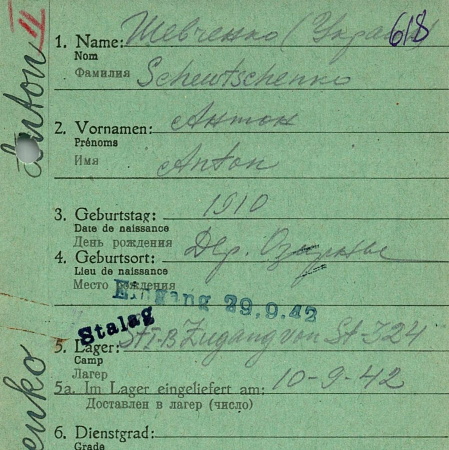 Anton II
618
1. Name: Шевченко (Украин
Nom
Фамилия Schewtschenko
2. Vornamen: Антон
Prénoms
Имя Anton
3. Geburtstag: 1910
Date de naissance
День рождения
4. Geburtsort: Дер.
Lieu de naissance
Место рождения
Eingang 29.9.42
Stalag
5. Lager: St I-B Zugang von St 324
Camp
Лагер
5a. Im Lager eingeliefert am: 10-9-42
Доставлен в лагер (число)
6. Dienstgrad:
Grade
enko